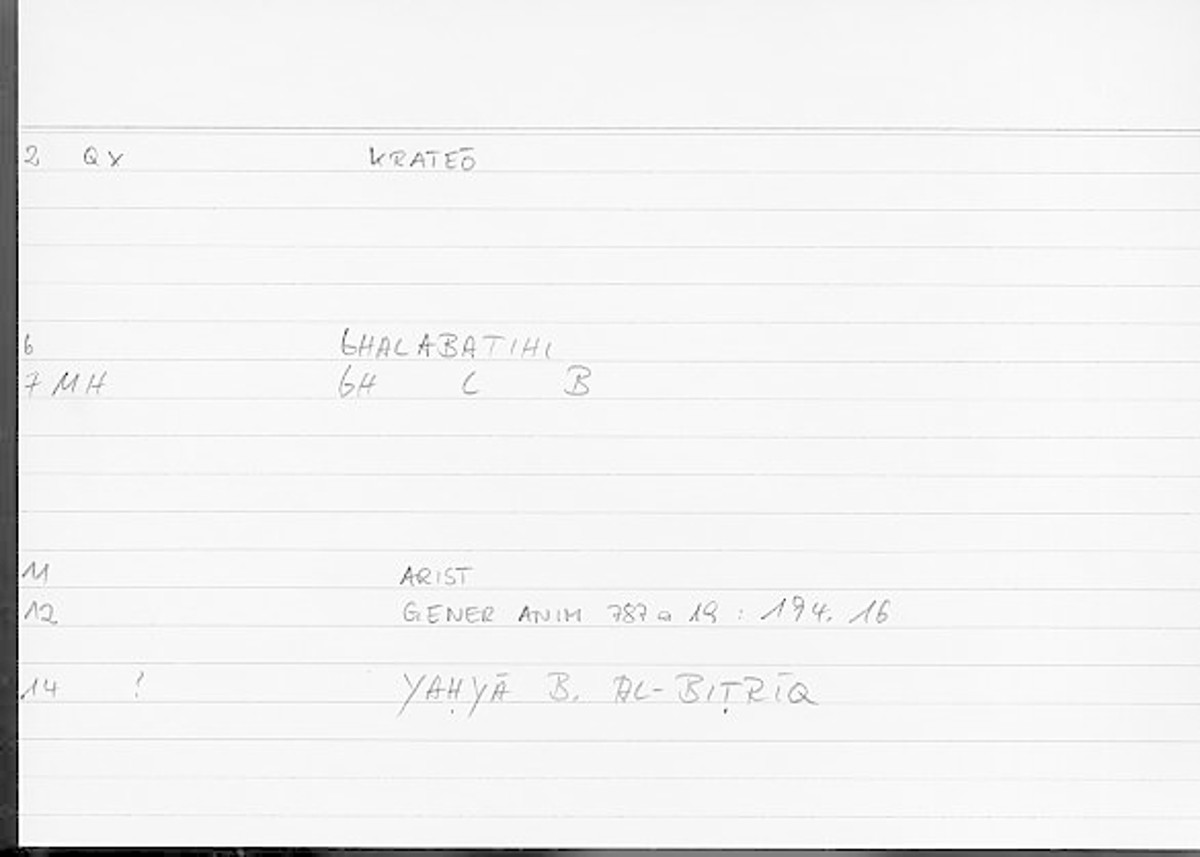 2 QX KRATEŌ
6 GHALABATIHI
7 MH GH L B
11 ARIST
12 GENER ANIM 787 a 19 : 194. 16
14 ? YAḤYĀ B. AL-BIṬRĪQ